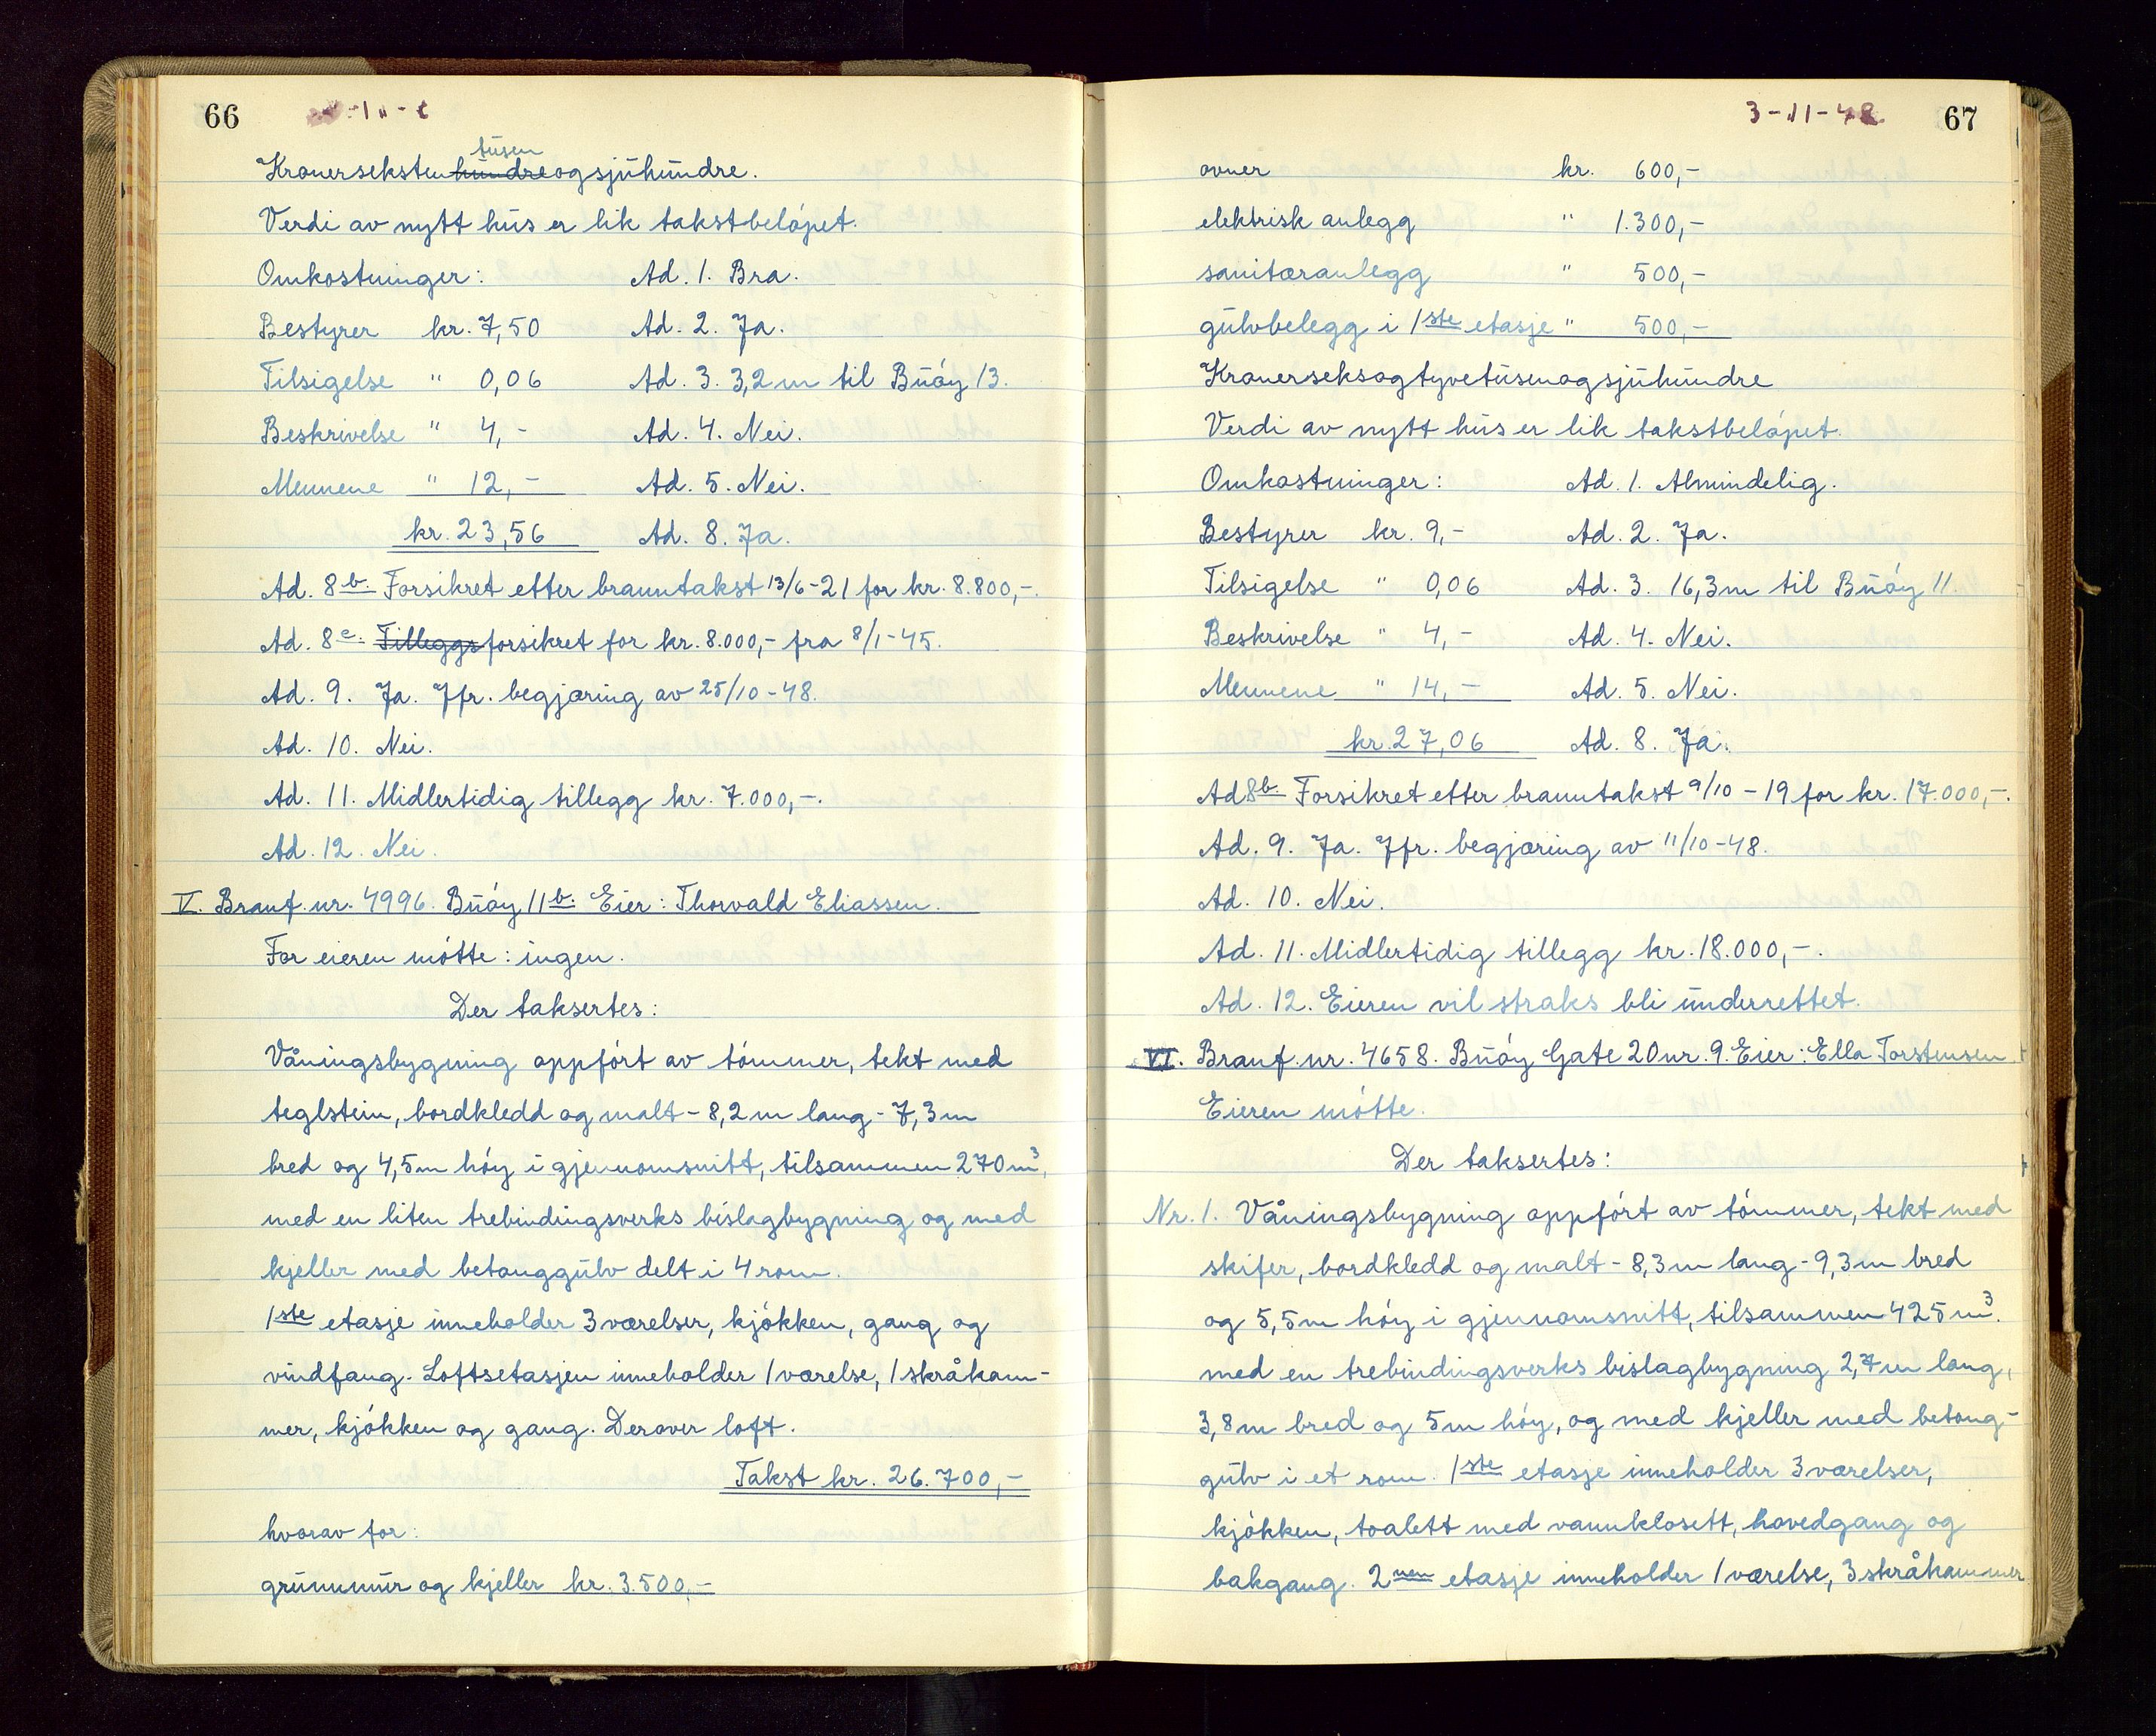 66
tusen
Kronerseksten hundre ogsjuhundre.
Verdi av nytt hus er lik takstbeløpet.
Omkostninger: Ad. 1. Bra.
Bestyrer kr. 7,50 Ad. 2. Ja.
Tilsigelse " 0,06 Ad. 3. 3,2 m til Buøy 13.
Beskrivelse " 4,- Ad. 4. Nei.
Mennene " 12,- Ad. 5. Nei.
kr. 23,56 Ad. 8. Ja.
Ad. 8b. Forsikret etter branntakst 13/6-21 for kr. 8.800,-.
Ad. 8c. Tilleggsforsikret for kr. 8.000,- fra 8/1-45.
Ad. 9. Ja. Jfr. begjæring av 25/10-48.
Ad. 10. Nei.
Ad. 11. Midlertidig tillegg kr. 7.000,-.
Ad. 12. Nei.
V. Branf. nr. 4996. Buøy 11b. Eier: Thorvald Eliassen.
For eieren møtte: ingen.
Der taksertes:
Våningsbygning oppført av tømmer, tekt med
teglstein, bordkledd og malt - 8,2 m lang - 7,3 m
bred og 4,5 m høy i gjennomsnitt, tilsammen 270 m³,
med en liten trebindingsverks bislagbygning og med
kjeller med betonggulv delt i 4 rom.
1ste etasje inneholder 3 værelser, kjøkken, gang og
vindfang. Loftsetasjen inneholder 1 værelse, 1 skråkam-
mer, kjøkken og gang. Derover loft.
Takst kr. 26.700,-
hvorav for:
grunnmur og kjeller kr. 3.500,-
3-11-48 67
ovner kr. 600,-
elektrisk anlegg " 1.300,-
sanitæranlegg " 500,-
gulvbelegg i 1ste etasje " 500,-
Kronerseksogtyvetusenogsjuhundre
Verdi av nytt hus er lik takstbeløpet.
Omkostninger: Ad. 1. Almindelig.
Bestyrer kr. 9,- Ad. 2. Ja.
Tilsigelse " 0,06 Ad. 3. 16,3 m til Buøy 11.
Beskrivelse " 4,- Ad. 4. Nei.
Mennene " 14,- Ad. 5. Nei.
kr. 27,06 Ad. 8. Ja.
Ad 8b. Forsikret etter branntakst 9/10-19 for kr. 17.000,-.
Ad. 9. Ja. Jfr. begjæring av 11/10-48.
Ad. 10. Nei.
Ad. 11. Midlertidig tillegg kr. 18.000,-.
Ad. 12. Eieren vil straks bli underrettet.
VI. Branf. nr. 4658. Buøy Gate 20 nr. 9. Eier: Ella Torstensen
Eieren møtte.
Der taksertes:
Nr. 1. Våningsbygning oppført av tømmer, tekt med
skifer, bordkledd og malt - 8,3 m lang - 9,3 m bred
og 5,5 m høy i gjennomsnitt, tilsammen 425 m³.
med en trebindingsverks bislagbygning 2,7 m lang,
3,8 m bred og 5 m høy, og med kjeller med betong-
gulv i et rom. 1ste etasje inneholder 3 værelser,
kjøkken, toalett med vannklosett, hovedgang og
bakgang. 2nen etasje inneholder 1 værelse, 3 skråkammer